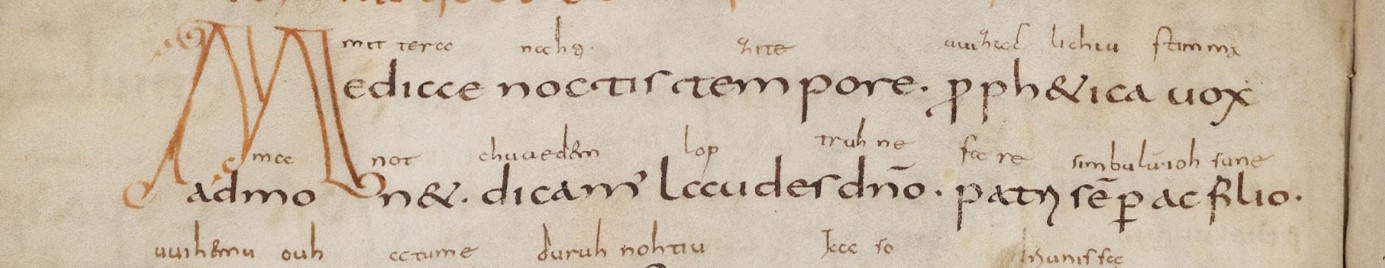 mittera nahti zite uuizac lichiu stimma
Mediae noctis tempore. ꝓph&ica uox
manot chuued&m lop truh ne fa re simbulū ioh sune
admon&. dicam' laudes dn̄o. patri sēp ac filio.
uuih&mu ouh atume duruh nohtiu